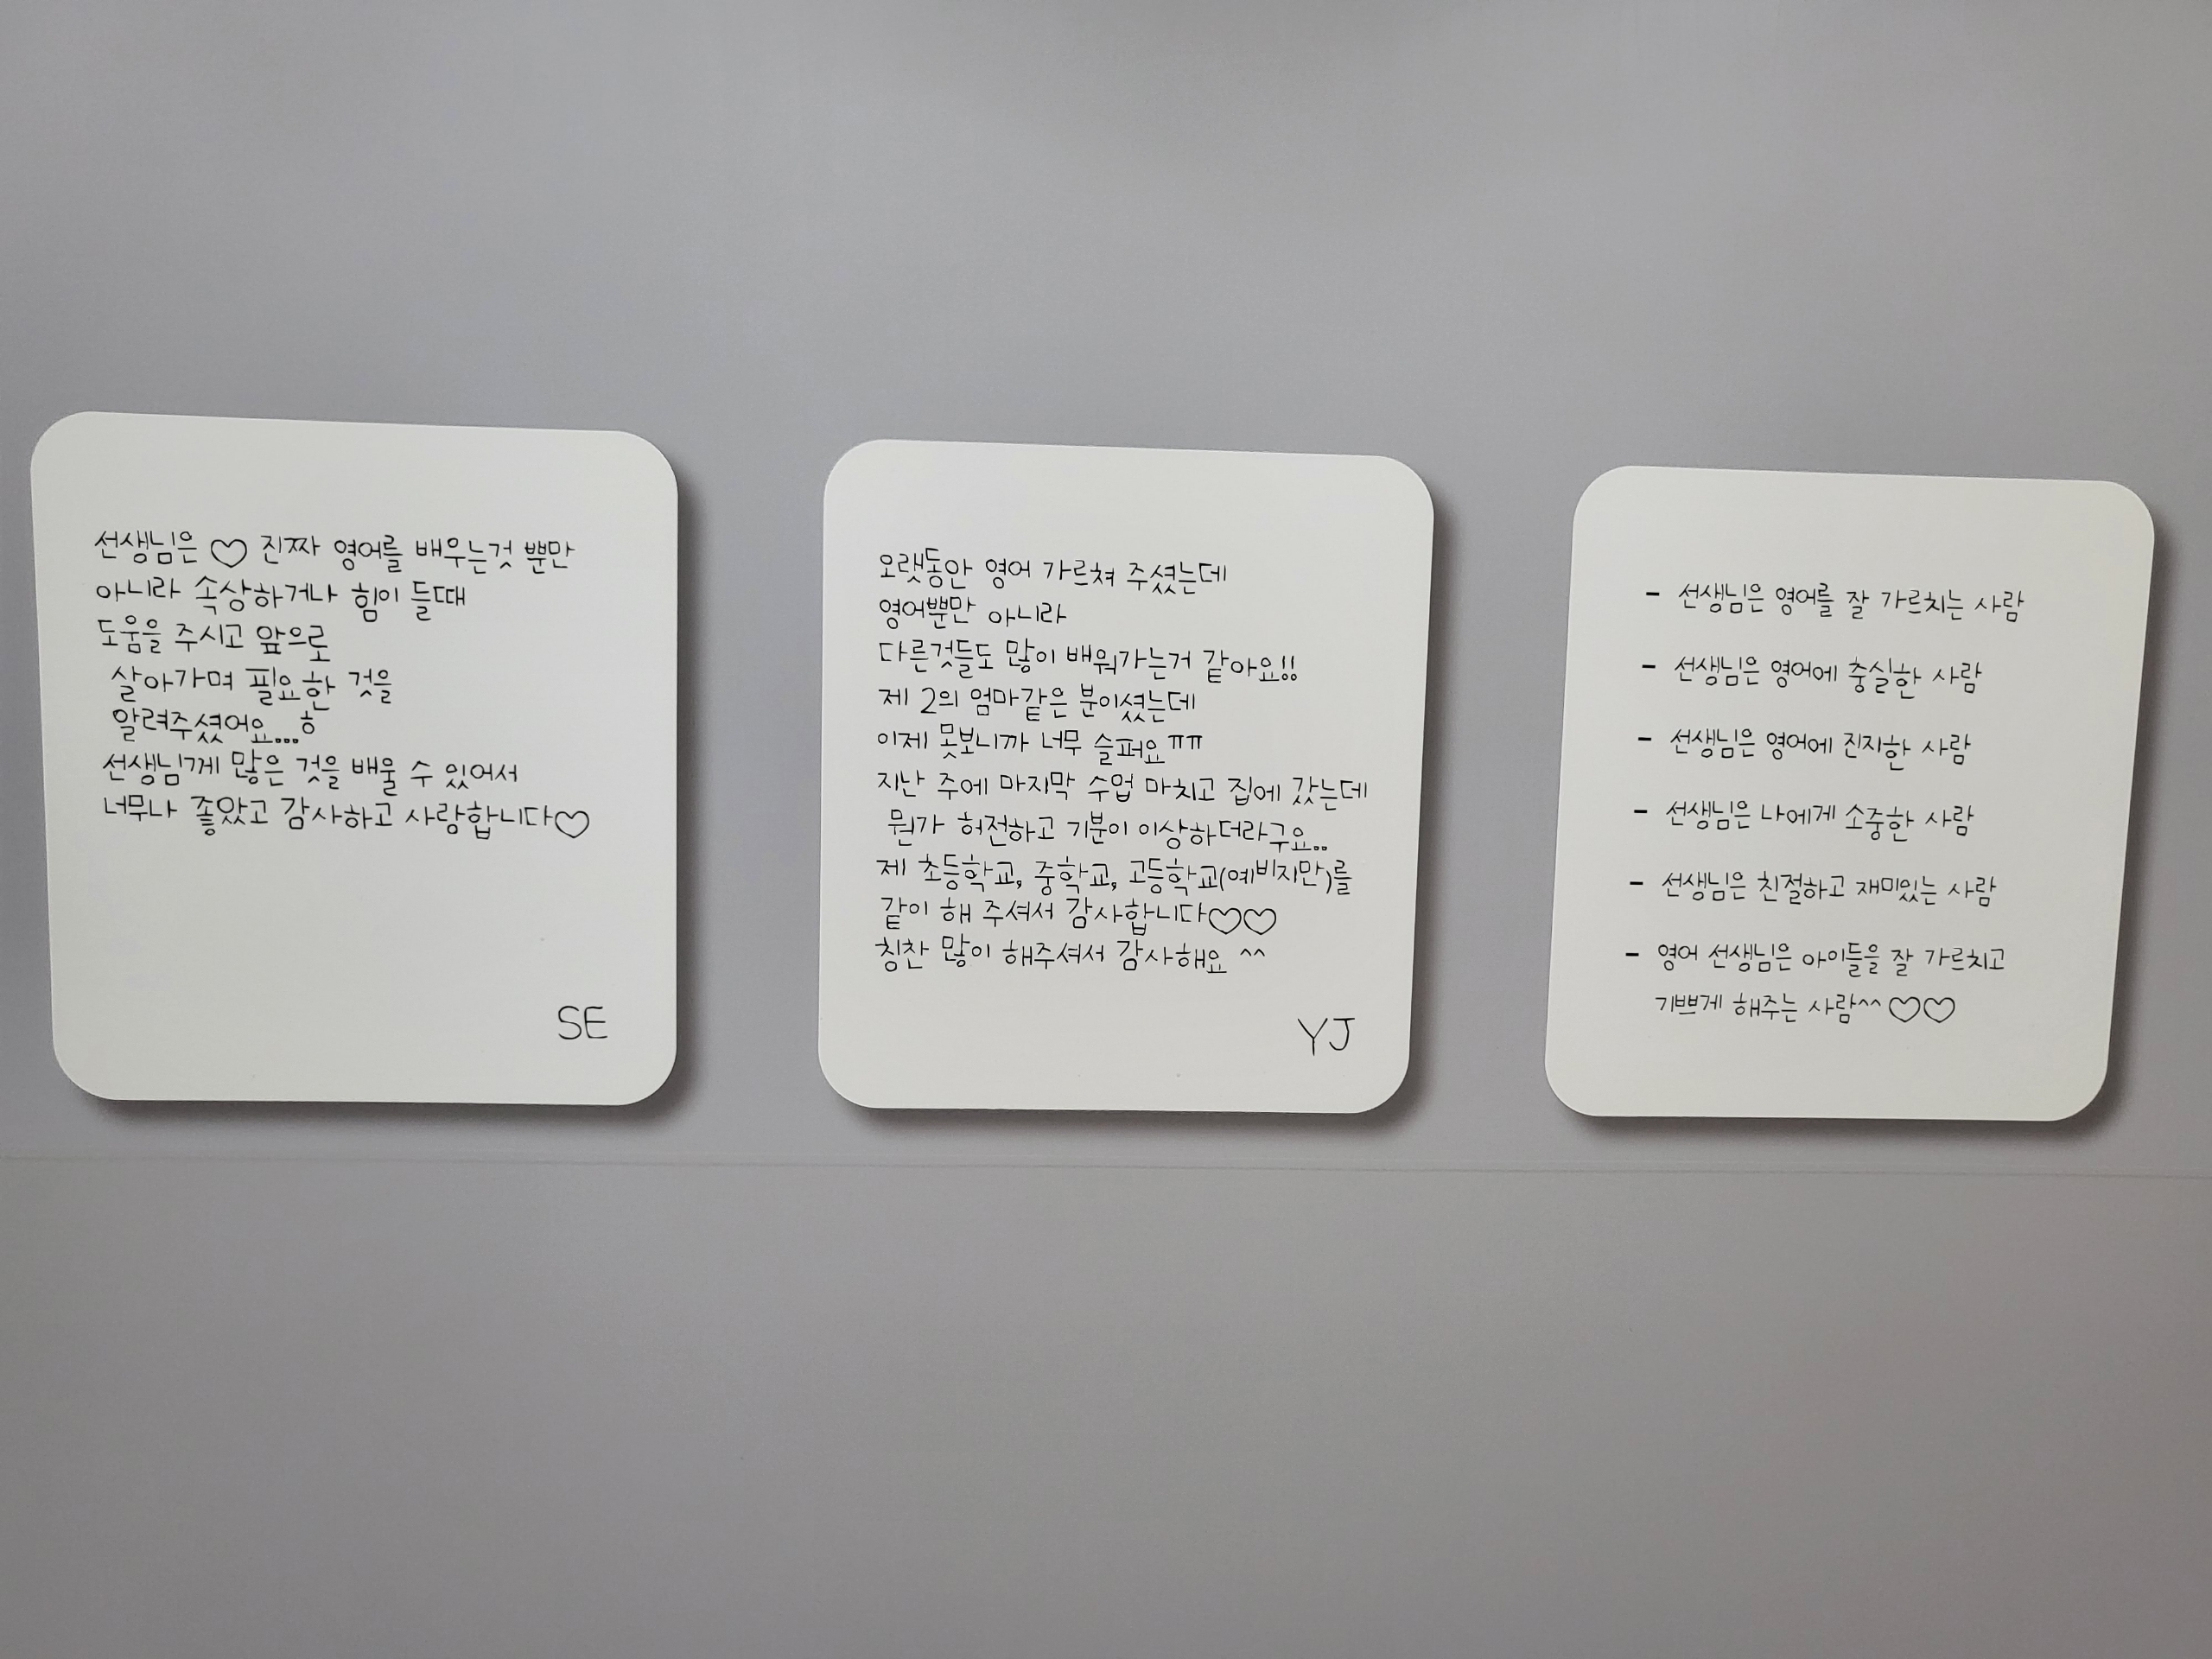 선생님은 ♡ 진짜 영어를 배우는것 뿐만
아니라 속상하거나 힘이 들때
도움을 주시고 앞으로
살아가며 필요한 것을
알려주셨어요...ㅎ
선생님께 많은 것을 배울 수 있어서
너무나 좋았고 감사하고 사랑합니다♡
SE
오랫동안 영어 가르쳐 주셨는데
영어뿐만 아니라
다른것들도 많이 배워가는거 같아요!!
제 2의 엄마같은 분이셨는데
이제 못보니까 너무 슬퍼요ㅠㅠ
지난 주에 마지막 수업 마치고 집에 갔는데
뭔가 허전하고 기분이 이상하더라구요..
제 초등학교, 중학교, 고등학교(예비지만)를
같이 해 주셔서 감사합니다♡♡
칭찬 많이 해주셔서 감사해요 ^^
YJ
- 선생님은 영어를 잘 가르치는 사람
- 선생님은 영어에 충실한 사람
- 선생님은 영어에 진지한 사람
- 선생님은 나에게 소중한 사람
- 선생님은 친절하고 재미있는 사람
- 영어 선생님은 아이들을 잘 가르치고
기쁘게 해주는 사람^^♡♡